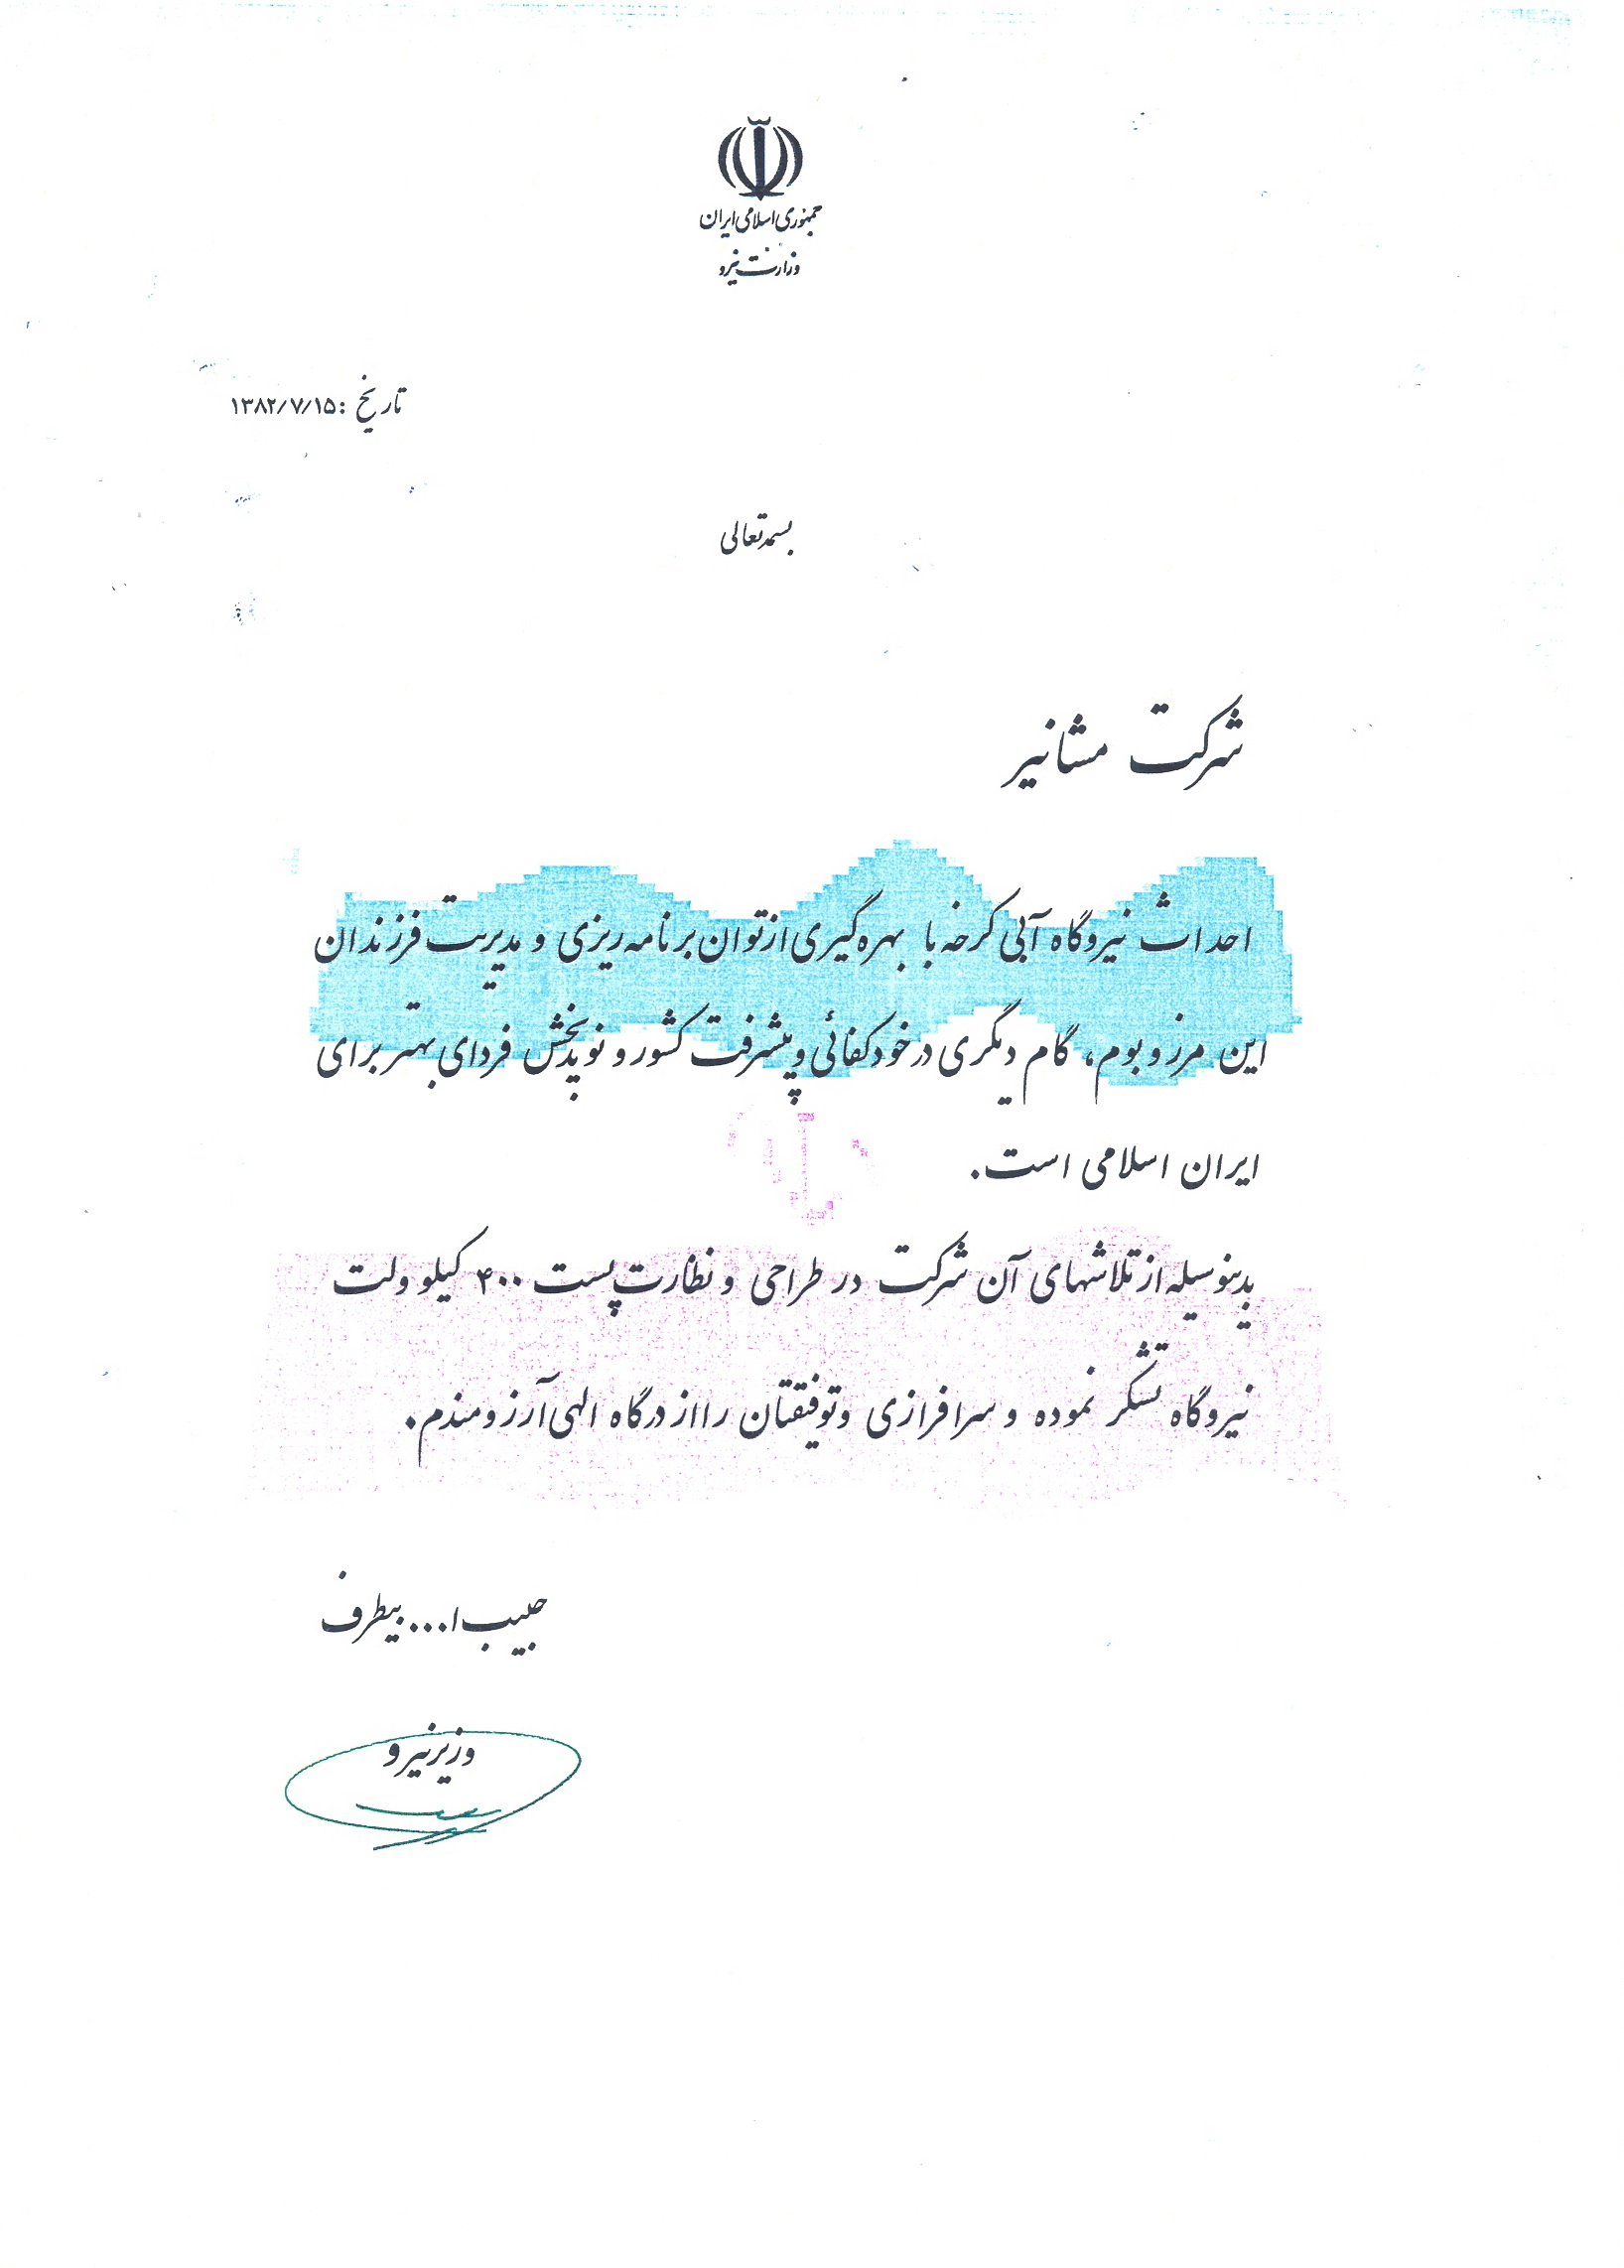 جمهوری اسلامی ایران
وزارت نیرو
تاریخ : ۱۳۸۲/۷/۱۵
بسمه تعالی
شرکت مشانیر
احداث نیروگاه آبی کرخه با بهره گیری از توان برنامه ریزی و مدیریت فرزندان
این مرز و بوم، گام دیگری در خودکفائی و پیشرفت کشور و نویدبخش فردای بهتر برای
ایران اسلامی است.
بدینوسیله از تلاشهای آن شرکت در طراحی و نظارت پست ۴۰۰ کیلو ولت
نیروگاه تشکر نموده و سرافرازی و توفیقتان را از درگاه الهی آرزومندم.
حبیب ا... بیطرف
وزیر نیرو